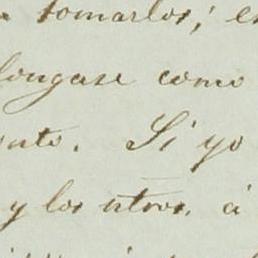 tomarlos; e
longase como
ento. Si yo
y los otros, á